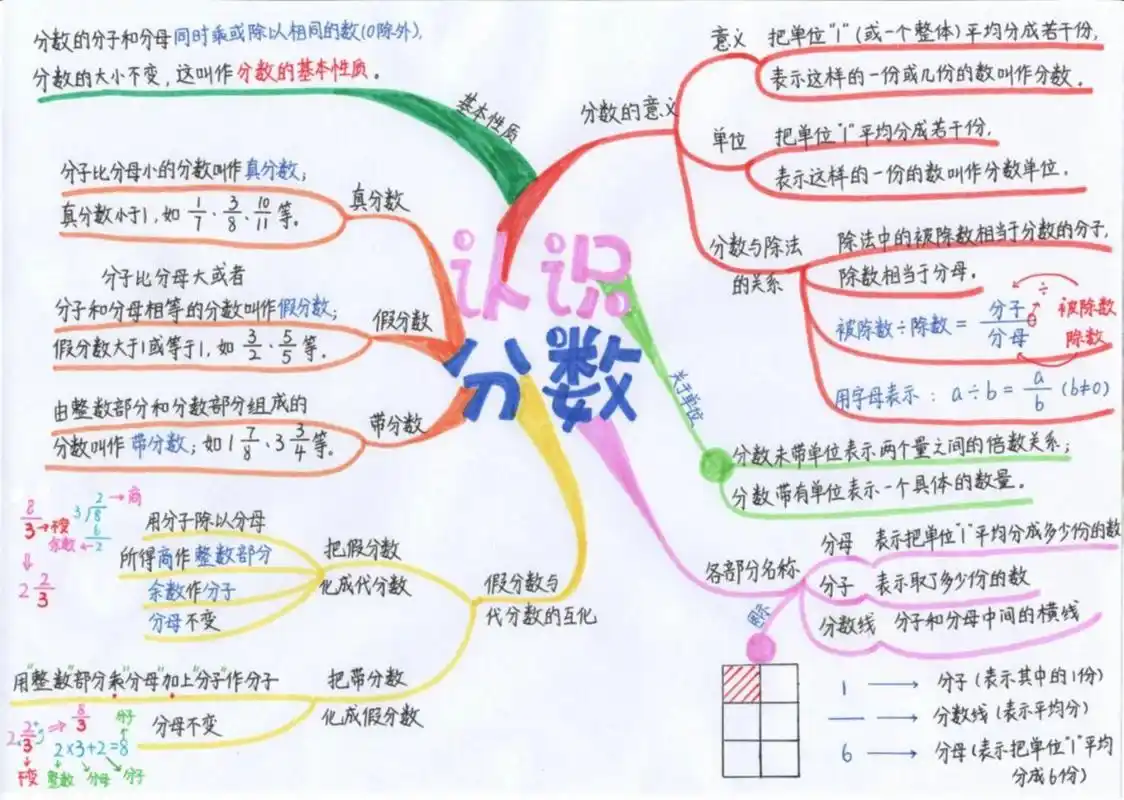 分数的分子和分母同时乘或除以相同的数(0除外),
分数的大小不变,这叫作分数的基本性质。
基本性质
认识
分数
分数的意义
意义 把单位"1"(或一个整体)平均分成若干份,
表示这样的一份或几份的数叫作分数。
单位 把单位"1"平均分成若干份,
表示这样的一份的数叫作分数单位。
分数与除法
的关系
除法中的被除数相当于分数的分子,
除数相当于分母。
被除数÷除数 = 分子/分母
÷
被除数
除数
用字母表示:a÷b = a/b (b≠0)
关于单位
分数未带单位表示两个量之间的倍数关系;
分数带有单位表示一个具体的数量。
各部分名称
分母 表示把单位"1"平均分成多少份的数
分子 表示取了多少份的数
分数线 分子和分母中间的横线
图示
1 → 分子(表示其中的1份)
— → 分数线(表示平均分)
6 → 分母(表示把单位"1"平均
分成6份)
真分数
分子比分母小的分数叫作真分数;
真分数小于1,如 1/7、3/8、10/11等。
假分数
分子比分母大或者
分子和分母相等的分数叫作假分数;
假分数大于1或等于1,如 3/2、5/5等。
带分数
由整数部分和分数部分组成的
分数叫作带分数;如1 7/8、3 3/4等。
假分数与
代分数的互化
把假分数
化成代分数
用分子除以分母
所得商作整数部分
余数作分子
分母不变
8/3 → 不变
⇓
2 2/3
2 → 商
3√8
6
余数 ← 2
把带分数
化成假分数
用"整数"部分乘"分母"加上"分子"作分子
分母不变
2 2/3 ⇒ 8/3
不变
分子
2×3+2=8
整数 分母 分子